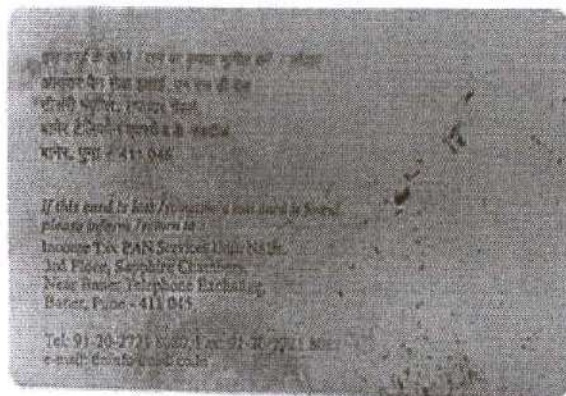 इस कार्ड के खोने / पाने पर कृपया सूचित करें / लौटाएं
आयकर पैन सेवा इकाई, एन एस डी एल
तीसरी मंजिल, सफायर चेंबर्स,
बानेर टेलिफोन एक्स्चेंज के नजदीक,
बानेर, पुना - 411 045
If this card is lost / someone's lost card is found,
please inform / return to :
Income Tax PAN Services Unit, NSDL
3rd Floor, Sapphire Chambers,
Near Baner Telephone Exchange,
Baner, Pune - 411 045
Tel: 91-20-2721 8080, Fax: 91-20-2721
e-mail: